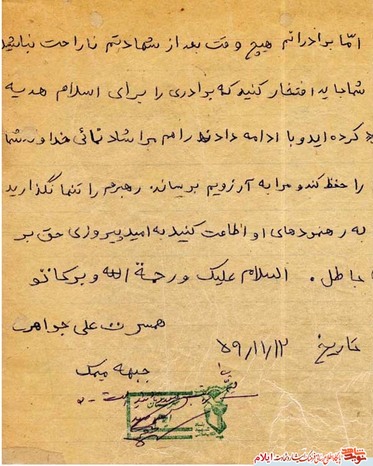 امّا برادرانم هیچ وقت بعد از شهادتم ناراحت نباشید
شما باید افتخار کنید که برادری را برای اسلام هدیه
کرده اید و با ادامه دادن راهم مرا شاد نمائی خداوند شما
را حفظ کند و مرا به آرزویم برساند. رهبرم را تنها نگذارید
به رهنمودهای او اطاعت کنید به امید پیروزی حق بر
باطل. السلام علیک و رحمة الله و برکاتو
همسرت علی جواهری
تاریخ ۵۹/۱۱/۱۲
جبهه میمک
ایلام